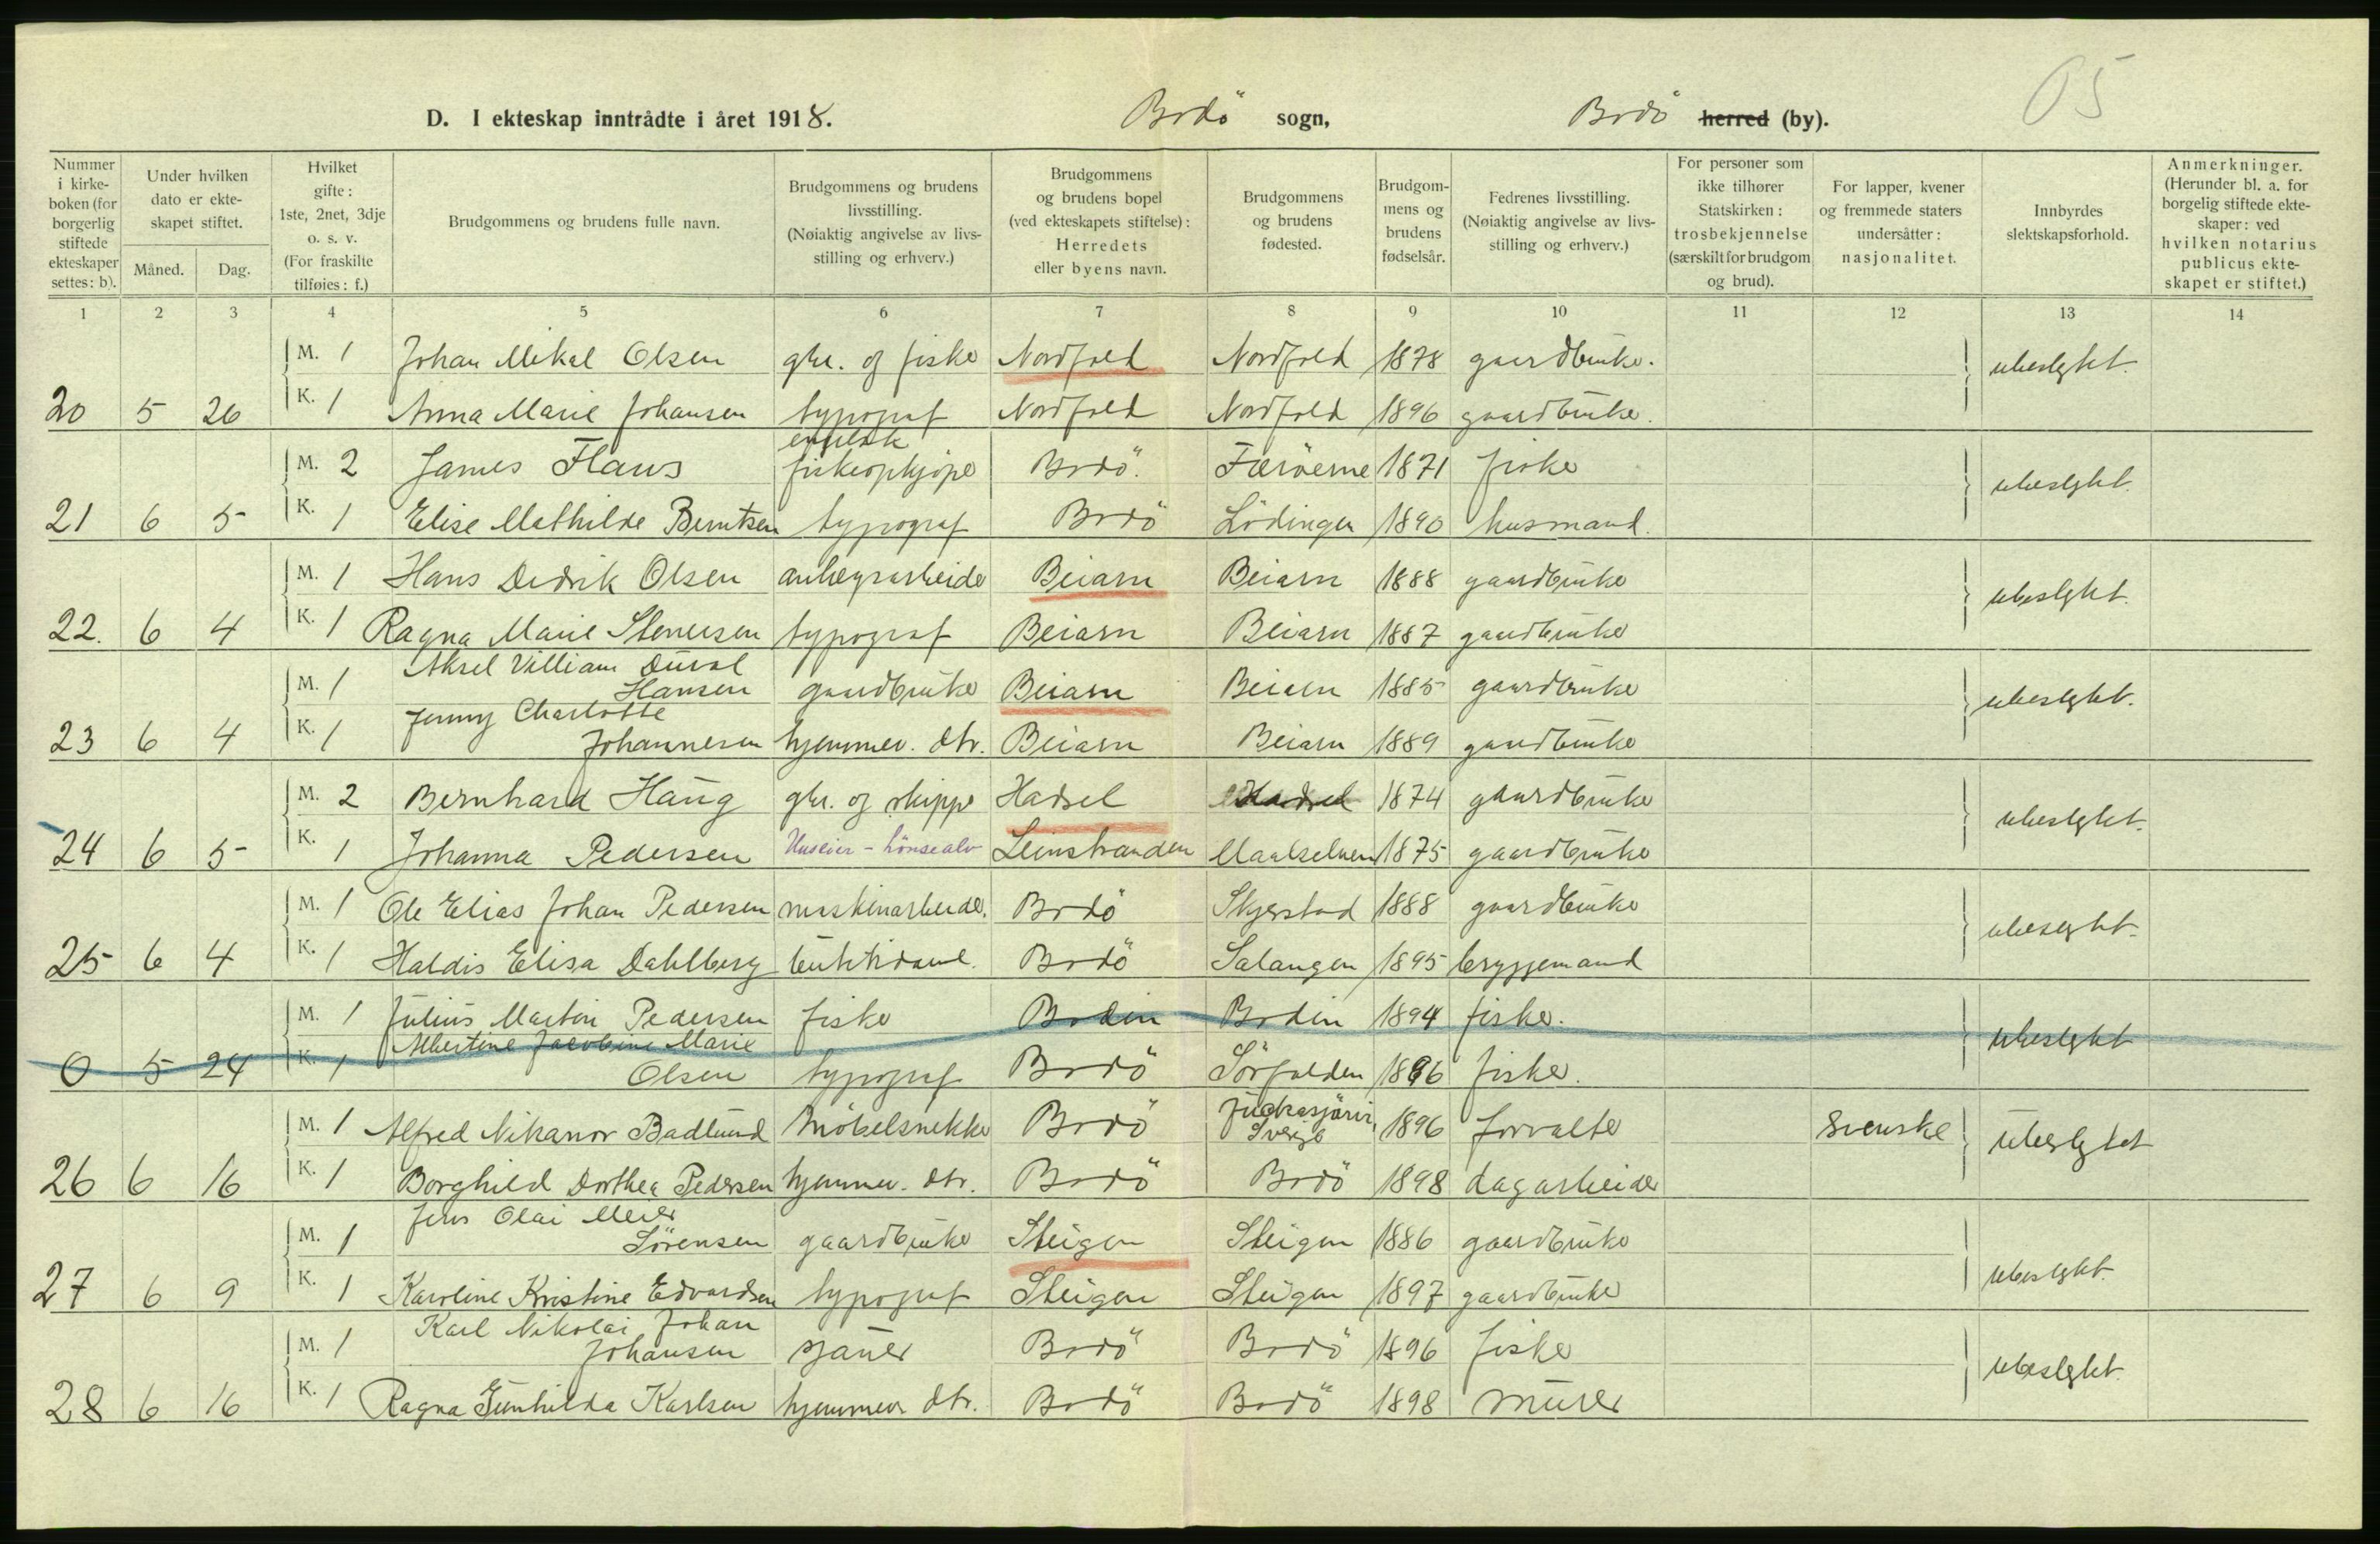 05
D. I ekteskap inntrådte i året 1918. Bodö sogn, Bodö herred (by).
Nummer i kirkeboken (for borgerlig stiftede ekteskaper settes: b).
Under hvilken dato er ekteskapet stiftet.
Måned. Dag.
Hvilket gifte: 1ste, 2net, 3dje o. s. v. (For fraskilte tilføies: f.)
Brudgommens og brudens fulle navn.
Brudgommens og brudens livsstilling. (Nøiaktig angivelse av livsstilling og erhverv.)
Brudgommens og brudens bopel (ved ekteskapets stiftelse): Herredets eller byens navn.
Brudgommens og brudens fødested.
Brudgommens og brudens fødselsår.
Fedrenes livsstilling. (Nøiaktig angivelse av livsstilling og erhverv.)
For personer som ikke tilhører Statskirken: trosbekjennelse (særskilt for brudgom og brud).
For lapper, kvener og fremmede staters undersåtter: nasjonalitet.
Innbyrdes slektskapsforhold.
Anmerkninger. (Herunder bl. a. for borgelig stiftede ekteskaper: ved hvilken notarius publicus ekteskapet er stiftet.)
1 2 3 4 5 6 7 8 9 10 11 12 13 14
M. 1 Johan Mikal Olsen gbr. og fisker Nordfold Nordfold 1878 gaardbruker. ubeslegtet.
20 5 26 K. 1 Anna Marie Johansen Nordfold Nordfold 1896 gaardbruker.
engelsk
M. 2 James Flaws fiskeopkjöper Bodö. Færöerne 1871 fisker ubeslegtet.
21 6 5 K. 1 Elise Mathilde Berntsen Bodö Lödingen 1890 husmand.
M. 1 Hans Didrik Olsen anlegsarbeider Beiarn Beiarn 1888 gaardbruker ubeslegtet.
22. 6 4 K. 1 Ragna Marie Stenersen Beiarn Beiarn 1887 gaardbruker
Aksel Villiam Düval
M. 1 Hansen gaardbruker Beiarn Beiarn 1885 gaardbruker ubeslegtet.
Jenny Charlotte
23 6 4 K. 1 Johannesen hjemmev. dtr. Beiarn Beiarn 1889 gaardbruker
M. 2 Bernhard Haug gbr. og skipper Hadsel Hadsel 1874 gaardbruker ubeslegtet.
24 6 5 K. 1 Johanna Pedersen Huseier - Leinstranden Maalselven 1875 gaardbruker
M. 1 Ole Elias Johan Pedersen maskinarbeider. Bodö Skjerstad 1888 gaardbruker ubeslegtet.
25 6 4 K. 1 Haldis Elisa Dahlberg butikdame. Bodö Salangen 1895 bryggemand
M. 1 Julius Martin Pedersen fisker Bodin Bodin 1894 fisker. ubeslegtet
Albertine Jacobine Marie
0 5 24 K. 1 Olsen Bodö Sörfolden 1896 fisker.
M. 1 Alfred Nikanor Badlund möbelsnekker Bodö Juckasjärvi, Sverige 1896 forvalter Svenske ubeslegtet
26 6 16 K. 1 Borghild Dorthea Pedersen hjemmev. dtr. Bodö Bodö 1898 dagarbeider
Jens Olai Meier
M. 1 Sörensen gaardbruker Steigen Steigen 1886 gaardbruker ubeslegtet.
27 6 9 K. 1 Karoline Kristine Edvardsen Steigen Steigen 1897 gaardbruker
Karl Nikolai Johan
M. 1 Johansen sjauer Bodö Bodö 1896 fisker ubeslegtet.
28 6 16 K. 1 Ragna Gunhilda Karlsen hjemmev dtr. Bodö Bodö 1898 murer